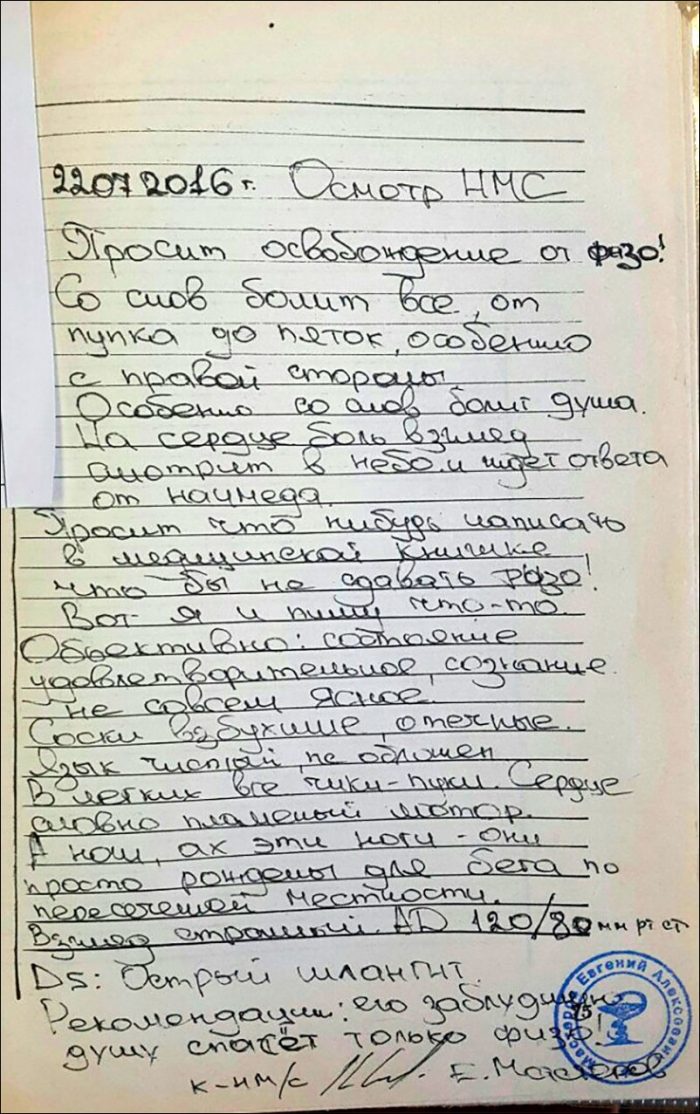 22072016г. Осмотр НМС
Просит освобождение от физо!
Со слов болит все, от
пупка до пяток, особенно
с правой стороны
Особенно со слов болит душа.
На сердце боль взгляд
смотрит в небо и ждет ответа
от начмеда.
Просит что нибудь написать
в медицинской книжке
что бы не сдавать физо!
Вот я и пишу что-то.
Объективно: состояние
удовлетворительное, сознание
не совсем ясное.
Соски взбухшие, отечные.
Язык чистый, не обложен
В легких все чики-пуки. Сердце
словно пламеный мотор.
А ноги, ах эти ноги - они
просто рождены для бега по
пересеченой местности.
Взгляд страшный. AD 120/80 мм рт ст
Ds: Острый шлангит.
Рекомендации: его заблудшую
душу спасёт только физо!
к-н м/с Е. Мастеров
Мастеров Евгений Алексеевич